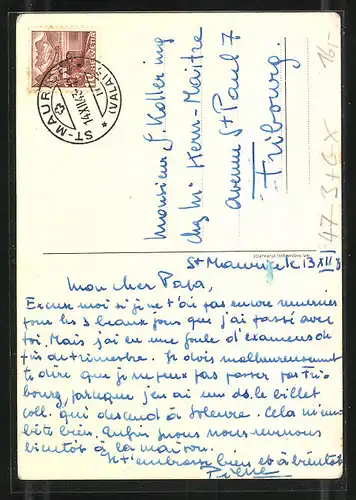 HELVETIA
ST-MAURICE
(VALAIS)
16,-
47-3+GX
Monsieur J. Kolly ing
chez Mr Kern-Maitre
avenue St Paul 7
Fribourg.
St Maurice le 13 XII
Mon cher Papa,
Excuse moi si je ne t'ai pas encore remercier
pour les 3 beaux jours que j'ai passé avec
toi. Mais j'ai eu une foule d'examens de
fin de trimestre. Je dois malheureusement
te dire que je ne peux pas passer par Fri-
bourg, parceque j'en ai un ds. le billet
coll. qui descend à Soleure. Cela m'em-
bête bien. Enfin nous nous reverrons
bientôt à la maison.
Je t'embrasse bien et à bientôt
Pierre